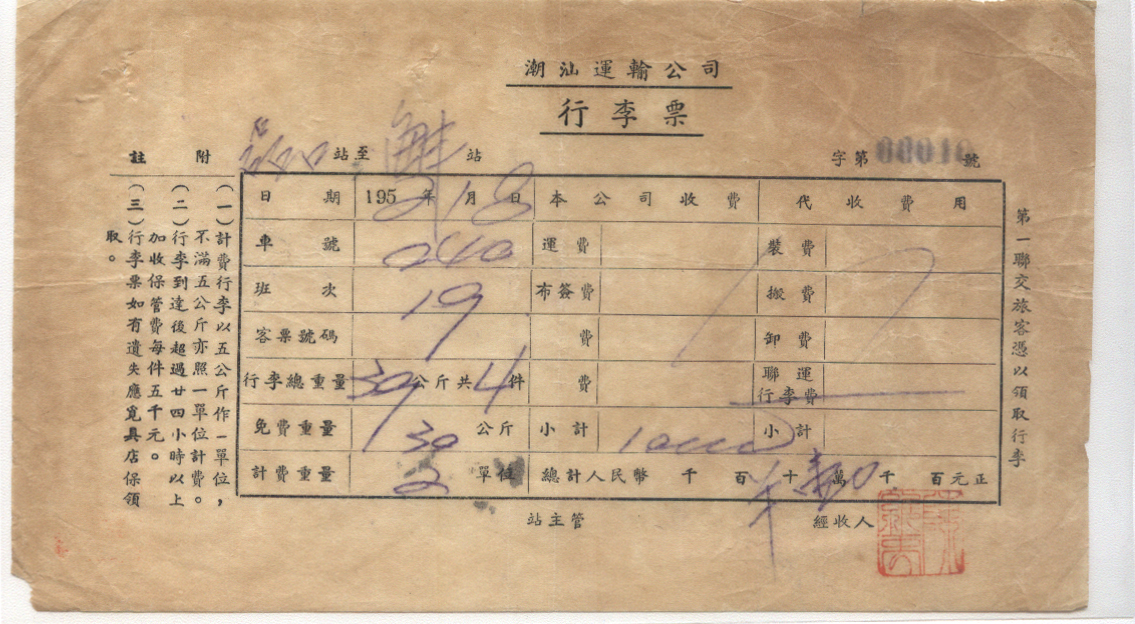 潮汕運輸公司
行李票
站至 站
字第 號
日期 195 年 月 日 本公司收費 代收費用
車號 240 運費 裝費
班次 19 布簽費 搬費
客票號碼 費 卸費
行李總重量 30 公斤共 4 件 費 聯運行李費
免費重量 公斤 小計 小計
計費重量 2 單位 總計人民幣 千 百 十 萬 千 百元正
站主管 經收人
第一聯交旅客憑以領取行李
附註
(一)計費行李以五公斤作一單位,
不滿五公斤亦照一單位計費。
(二)行李到達後超過廿四小時以上
加收保管費每件五千元。
(三)行李票如有遺失應覓具店保領
取。